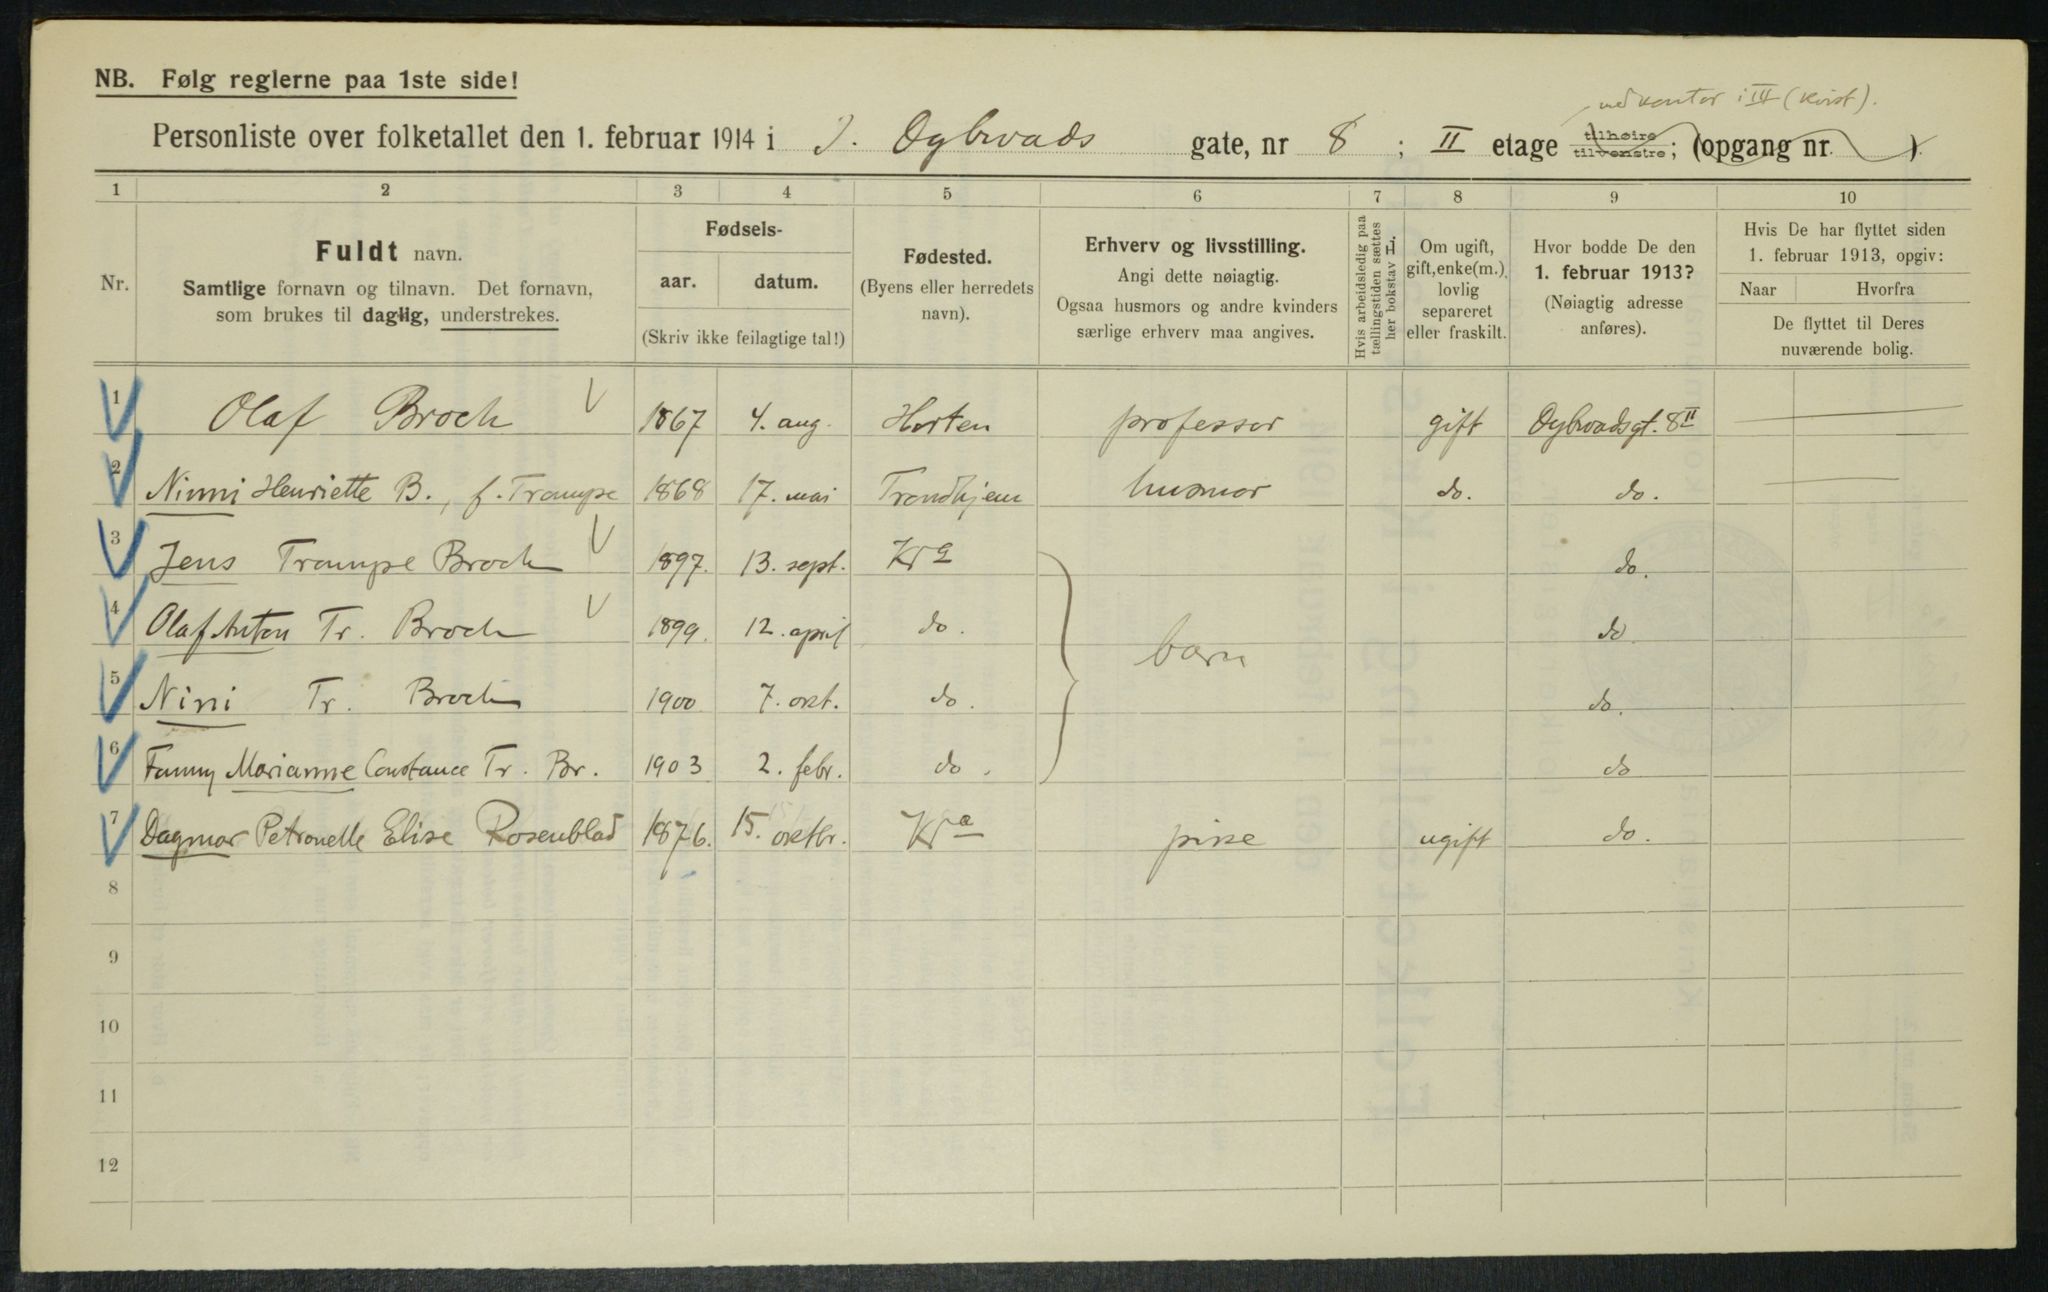 NB. Følg reglerne paa 1ste side!
med kontor i III (kvist).
Personliste over folketallet den 1. februar 1914 i J. Dybwads gate, nr 8 ; II etage tilhøire tilvenstre; (opgang nr. ).
1 2 3 4 5 6 7 8 9 10
Nr.
Fuldt navn.
Samtlige fornavn og tilnavn. Det fornavn,
som brukes til daglig, understrekes.
Fødsels-
aar. datum.
(Skriv ikke feilagtige tal!)
Fødested.
(Byens eller herredets
navn).
Erhverv og livsstilling.
Angi dette nøiagtig.
Ogsaa husmors og andre kvinders
særlige erhverv maa angives.
Hvis arbeidsledig paa
tællingstiden sættes
her bokstav L.
Om ugift,
gift, enke(m.),
lovlig
separeret
eller fraskilt.
Hvor bodde De den
1. februar 1913?
(Nøiagtig adresse
anføres).
Hvis De har flyttet siden
1. februar 1913, opgiv:
Naar Hvorfra
De flyttet til Deres
nuværende bolig.
1 Olaf Broch 1867 4. aug. Horten professor gift Dybwadsgt. 8 II
2 Ninni Henriette B., f. Trampe 1868 17. mai Trondhjem husmor do. do.
3 Jens Trampe Broch 1897. 13. sept. Kra do.
4 Olaf Anton Tr. Broch 1899. 12. april do. do.
barn
5 Nini Tr. Broch 1900 7. okt. do. do.
6 Fanny Marianne Constance Tr. Br. 1903 2. febr. do. do
7 Dagmar Petronelle Elise Rosenblad 1876. 15. oktbr. Kra pike ugift do.
8
9
10
11
12